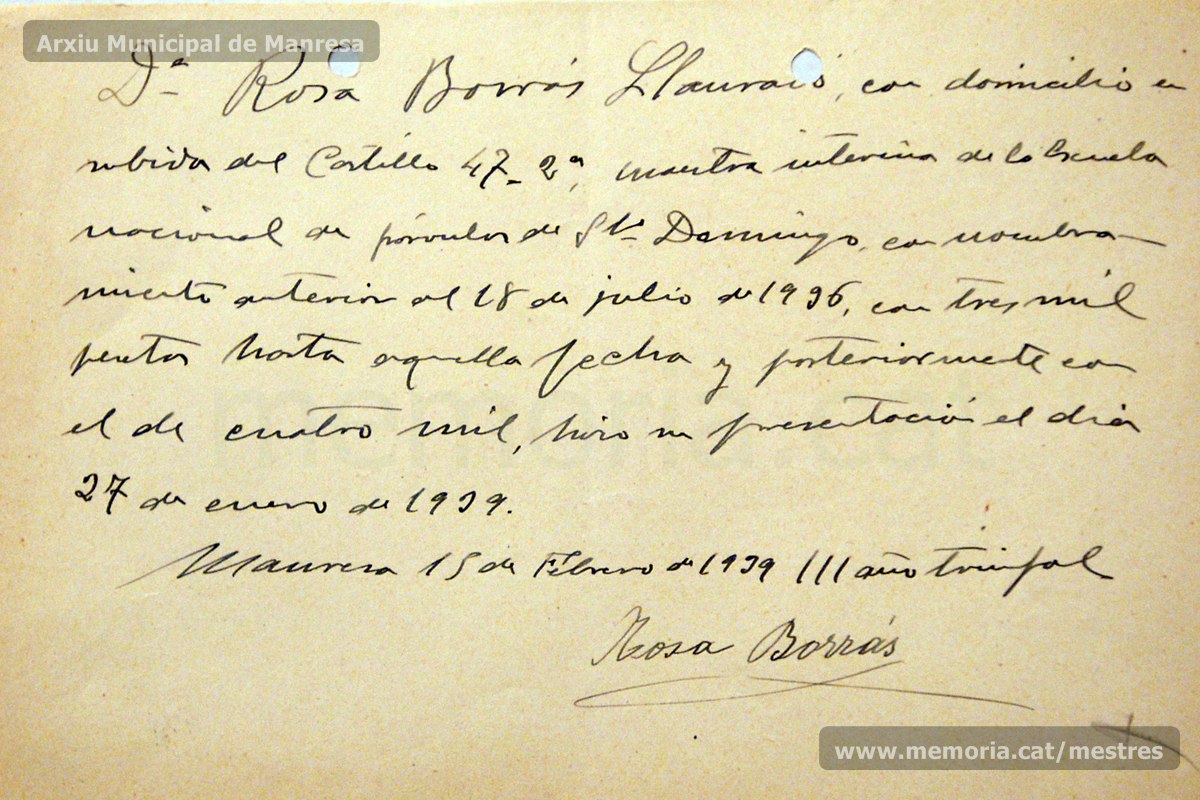 Arxiu Municipal de Manresa
Dª Rosa Borrás Llauradó, con domicilio en
subida del Castillo 47-2ª, maestra interina de la Escuela
nacional de párvulos de Sto Domingo, con nombra-
miento anterior al 18 de julio de 1936, con tres mil
pesetas hasta aquella fecha y posteriormente con
el de cuatro mil, hizo su presentación el dia
27 de enero de 1939.
Manresa 15 de Febrero de 1939 III año triunfal
Rosa Borrás
memoria.cat
www.memoria.cat/mestres